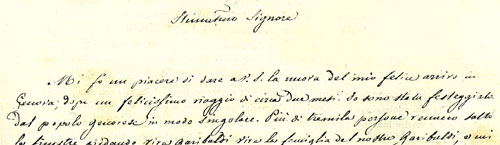 Stimatissimo Signore
Mi fo un piacere di dare a V. S. la nuova del mio felice arrivo in
Genova, dopo un felicissimo viaggio di circa due mesi. Io sono stata festeggiata
dal popolo genovese in modo singolare. Più di tremila persone vennero sotto
le finestre gridando viva Garibaldi viva la famiglia del nostro Garibaldi, e mi